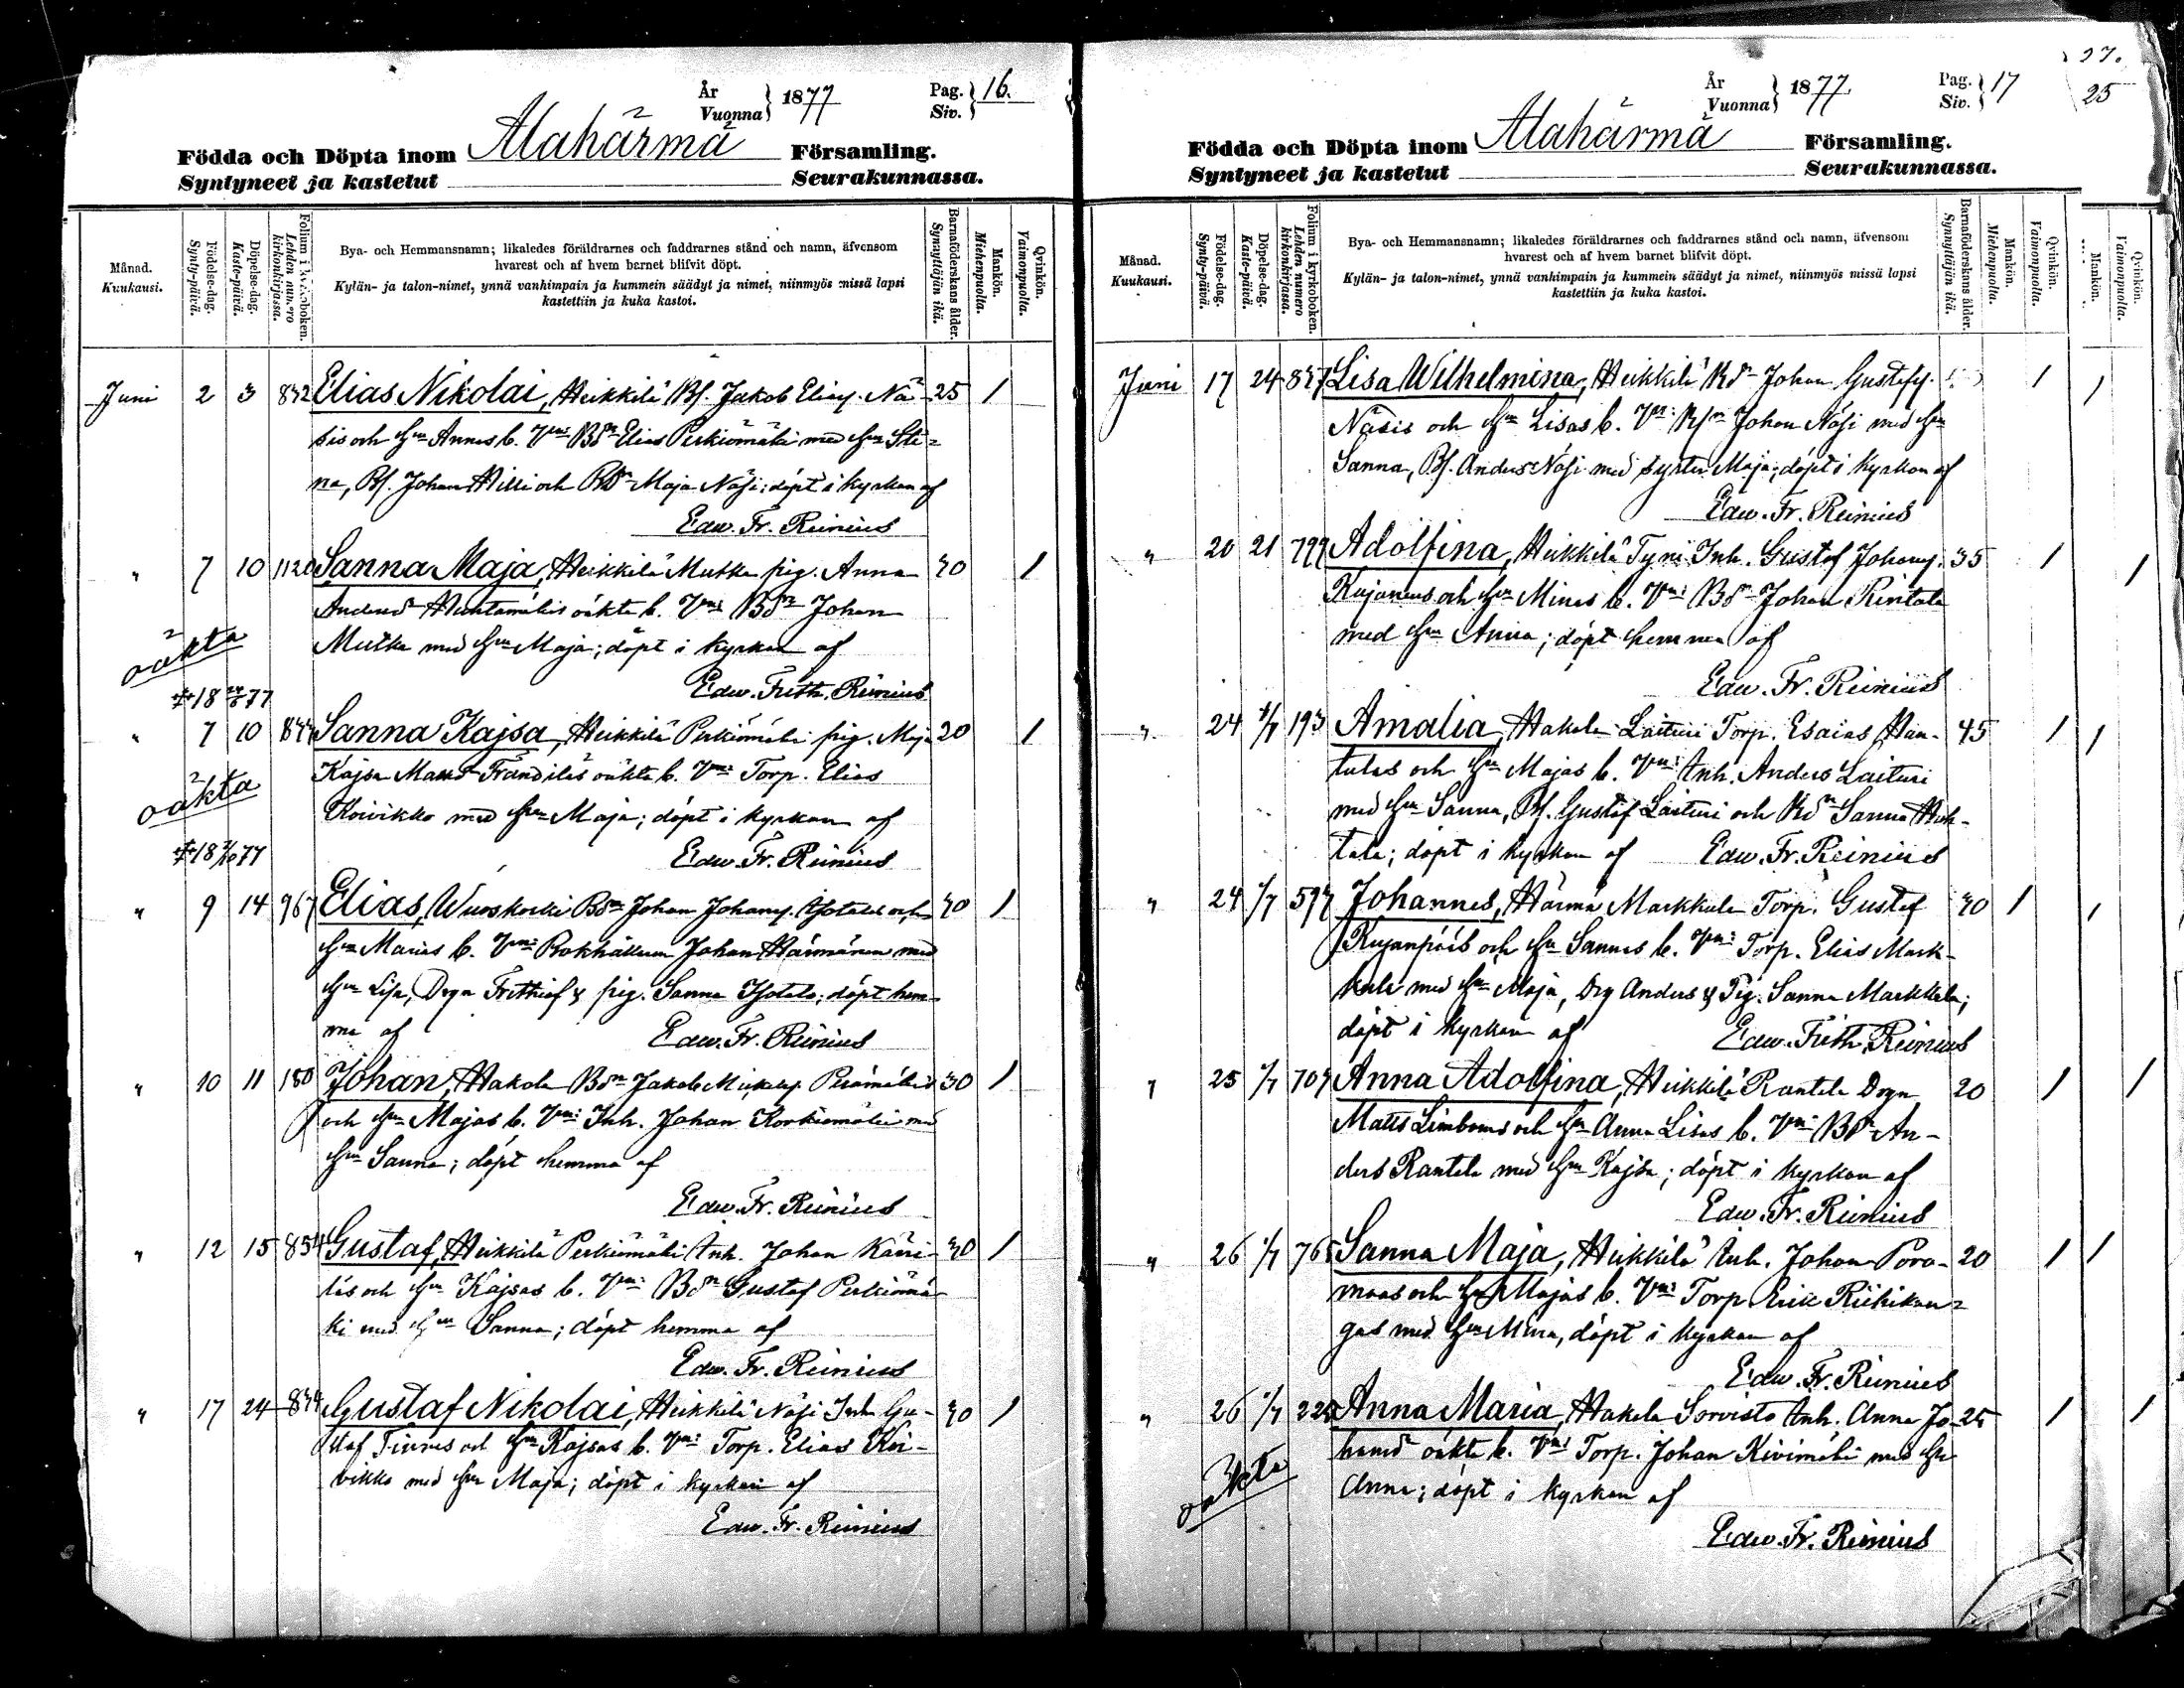 År
Vuonna } 1877
Pag.
Siv. } 16.
Födda och Döpta inom Alahärmä Församling.
Syntyneet ja kastetut Seurakunnassa.
Månad.
Kuukausi.
Födelse-dag.
Synty-päivä.
Döpelse-dag.
Kaste-päivä.
Folium i kyrkoboken.
Lehden numero
kirkonkirjassa.
Bya- och Hemmansnamn; likaledes föräldrarnes och faddrarnes stånd och namn, äfvensom
hvarest och af hvem barnet blifvit döpt.
Kylän- ja talon-nimet, ynnä vanhimpain ja kummein säädyt ja nimet, niinmyös missä lapsi
kastettiin ja kuka kastoi.
Barnaföderskans ålder.
Synnyttäjän ikä.
Mankön.
Miehenpuolta.
Qvinkön.
Vaimonpuolta.
Juni 2 3 832 Elias Nikolai, Heikkilä Bs. Jakob Eliass. Nä- 25 1
sis och Hu Annas b. Vn: Bdn Elias Perkiömäki med Hu Sti-
na, Bs. Johan Willi och Bdn Maja Näsi; döpt i kyrkan af
Edw. Fr. Reinius
" 7 10 1120 Sanna Maja, Heikkilä Mutka pig. Anna 30 1
Andersdr Huhtamäkis oäkta b. Vn: Bdn Johan
oäkta Mutka med Hu Maja; döpt i kyrkan af
Edw. Frith. Reinius
" 7 10 Sanna Kajsa, Heikkilä Perkiömäki pig. Maja 20 1
Kajsa Mattsdr Frändiläs oäkta b. Vn: Torp. Elias
oäkta Koivikko med Hu Maja; döpt i kyrkan af
Edw. Fr. Reinius
" 9 14 967 Elias, Wuoskoski Bdn Johan Johanss. Isotalos och 30 1
Hu Marias b. Vn: Bokhållaren Johan Härmänen med
Hu Lisa, Drgn Frithiof & pig. Sanna Isotalo; döpt hem-
ma af Edw. Fr. Reinius
" 10 11 180 Johan, Hakola Bdn Jakob Mickelss. Perämäkis 30 1
och Hu Majas b. Vn: Inh. Johan Korkiamäki med
Hu Sanna; döpt hemma af
Edw. Fr. Reinius
" 12 15 854 Gustaf, Heikkilä Perkiömäki Inh. Johan Karri- 30 1
läs och Hu Kajsas b. Vn: Bdn Gustaf Perkiömä-
ki med Hu Sanna; döpt hemma af
Edw. Fr. Reinius
" 17 24 834 Gustaf Nikolai, Heikkilä Näsi Inh. Gu- 30 1
staf Finnes och Hu Kajsas b. Vn: Torp. Elias Koi-
vikko med Hu Maja; döpt i kyrkan af
Edw. Fr. Reinius
27.
25
År
Vuonna } 1877
Pag.
Siv. } 17
Födda och Döpta inom Alahärmä Församling.
Syntyneet ja kastetut Seurakunnassa.
Månad.
Kuukausi.
Födelse-dag.
Synty-päivä.
Döpelse-dag.
Kaste-päivä.
Folium i kyrkoboken.
Lehden numero
kirkonkirjassa.
Bya- och Hemmansnamn; likaledes föräldrarnes och faddrarnes stånd och namn, äfvensom
hvarest och af hvem barnet blifvit döpt.
Kylän- ja talon-nimet, ynnä vanhimpain ja kummein säädyt ja nimet, niinmyös missä lapsi
kastettiin ja kuka kastoi.
Barnaföderskans ålder.
Synnyttäjän ikä.
Mankön.
Miehenpuolta.
Qvinkön.
Vaimonpuolta.
Mankön.
Qvinkön.
Vaimonpuolta.
Juni 17 24 Lisa Wilhelmina, Heikkilä Bdn Johan Gustafs. 1
Näsis och Hu Lisas b. Vn: Bdn Johan Näsi med Hu
Sanna, Bs. Anders Näsi med syster Maja; döpt i kyrkan af
Edw. Fr. Reinius
" 20 21 799 Adolfina, Heikkilä Tyni Inh. Gustaf Johanss. 35 1
Kujanens och Hu Minas b. Vn: Bdn Johan Rintala
med Hu Anna; döpt hemma af
Edw. Fr. Reinius
" 24 1/7 193 Amalia, Hakola Laituri Torp. Esaias Han- 45 1
tulas och Hu Majas b. Vn: Inh. Anders Laituri
med Hu Sanna, Bs. Gustaf Laituri och Bdr Sanna
tala; döpt i kyrkan af Edw. Fr. Reinius
" 24 1/7 597 Johannes, Härmä Markkula Torp. Gustaf 30 1
Kujanpääs och Hu Sannas b. Vn: Torp. Elias Mark-
kula med Hu Maja, Drg Anders & Pig. Sanna Markkula;
döpt i kyrkan af Edw. Frith. Reinius
" 25 1/7 707 Anna Adolfina, Heikkilä Rantala Drgn 20 1
Matts Limboms och Hu Anna Lisas b. Vn: Bdn An-
ders Rantala med Hu Kajsa; döpt i kyrkan af
Edw. Fr. Reinius
" 26 1/7 765 Sanna Maja, Heikkilä Inh. Johan Pora- 20 1
maas och Hu Majas b. Vn: Torp Erik Riihikan-
gas med Hu Mina, döpt i kyrkan af
Edw. Fr. Reinius
" 26 1/7 Anna Maria, Hakola Sorvisto Inh. Anna Jo- 25 1
hansdr oäkta b. Vn: Torp. Johan Kivimäki med Hu
oäkta Anna; döpt i kyrkan af
Edw. Fr. Reinius